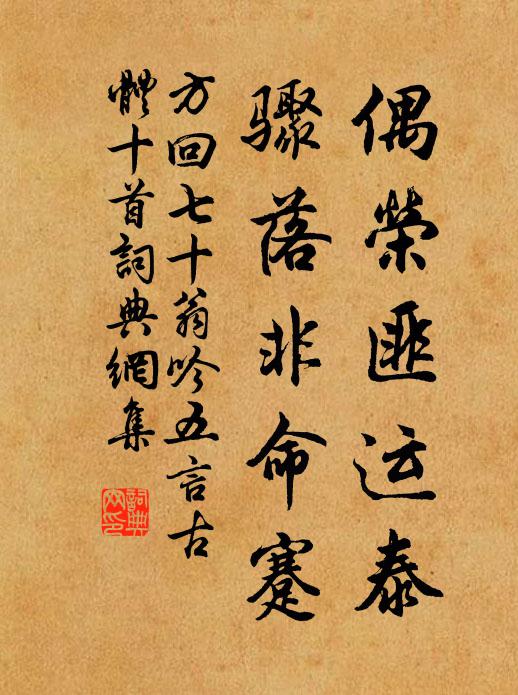 偶榮匪运泰
骤落非命蹇
方回七十翁吟五言古
體十首詞典網集
詞典网印